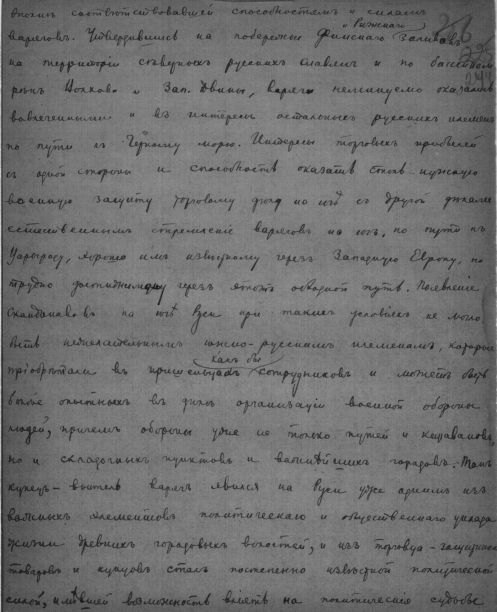 вполнѣ соотвѣтствовавшей способностямъ и силамъ
и Рижскаго
варяговъ. Утвердившись на побережьи Финскаго заливовъ
на территоріи сѣверныхъ русскихъ славянъ и по бассейнамъ
рѣкъ Волхова и Зап. Двины, варяги неминуемо оказались
вовлеченными и въ интересы остальныхъ русскихъ племенъ
по пути къ Черному морю. Интересы торговыхъ прибылей
съ одной стороны и способность оказать столь нужную
военную защиту торговому фонду на югѣ съ другой дѣлали
естественнымъ стремленіе варяговъ на югъ, по пути къ
Царьграду, хорошо имъ извѣстному черезъ Западную Европу, но
трудно достижимому черезъ этотъ обходной путь. Появленіе
Скандинавовъ на югѣ Руси при такихъ условіяхъ не могло
быть нежелательнымъ южно-русскимъ племенамъ, которые
какъ бы
пріобрѣтали въ пришельцахъ сотрудниковъ и можетъ быть
болѣе опытныхъ въ дѣлѣ организаціи военной обороны
людей, причемъ обороны уже не только путей и каравановъ,
но и складочныхъ пунктовъ и важнѣйшихъ городовъ. Такъ
купецъ-воитель варягъ явился на Руси уже однимъ изъ
важныхъ элементовъ политическаго и общественнаго уклада
жизни древнихъ городовыхъ волостей, и изъ торговца-защитника
товаровъ и купцовъ сталъ постепенно извѣстной политической
силой, имѣвшей возможность вліять на политическія судьбы